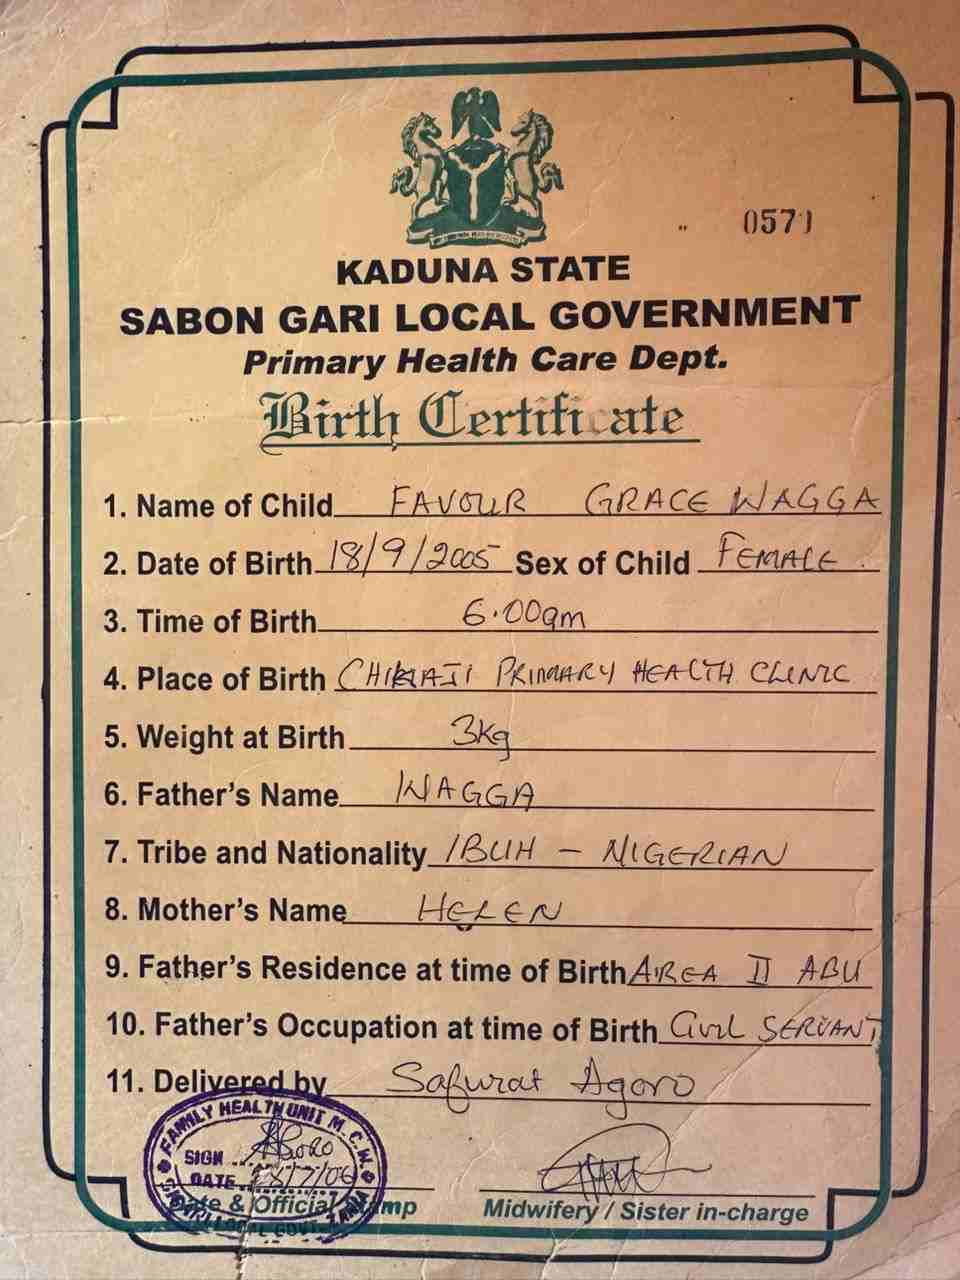 0571
KADUNA STATE
SABON GARI LOCAL GOVERNMENT
Primary Health Care Dept.
Birth Certificate
1. Name of Child FAVOUR GRACE WAGGA
2. Date of Birth 18/9/2005 Sex of Child FEMALE
3. Time of Birth 6.00am
4. Place of Birth CHIKAJI PRIMARY HEALTH CLINIC
5. Weight at Birth 3kg
6. Father's Name WAGGA
7. Tribe and Nationality IBUH - NIGERIAN
8. Mother's Name HELEN
9. Father's Residence at time of Birth AREA II ABU
10. Father's Occupation at time of Birth Civil SERVANT
11. Delivered by Safurat Agoro
FAMILY HEALTH UNIT M.C.W.
SIGN
DATE
Date & Official Stamp
Midwifery / Sister in-charge